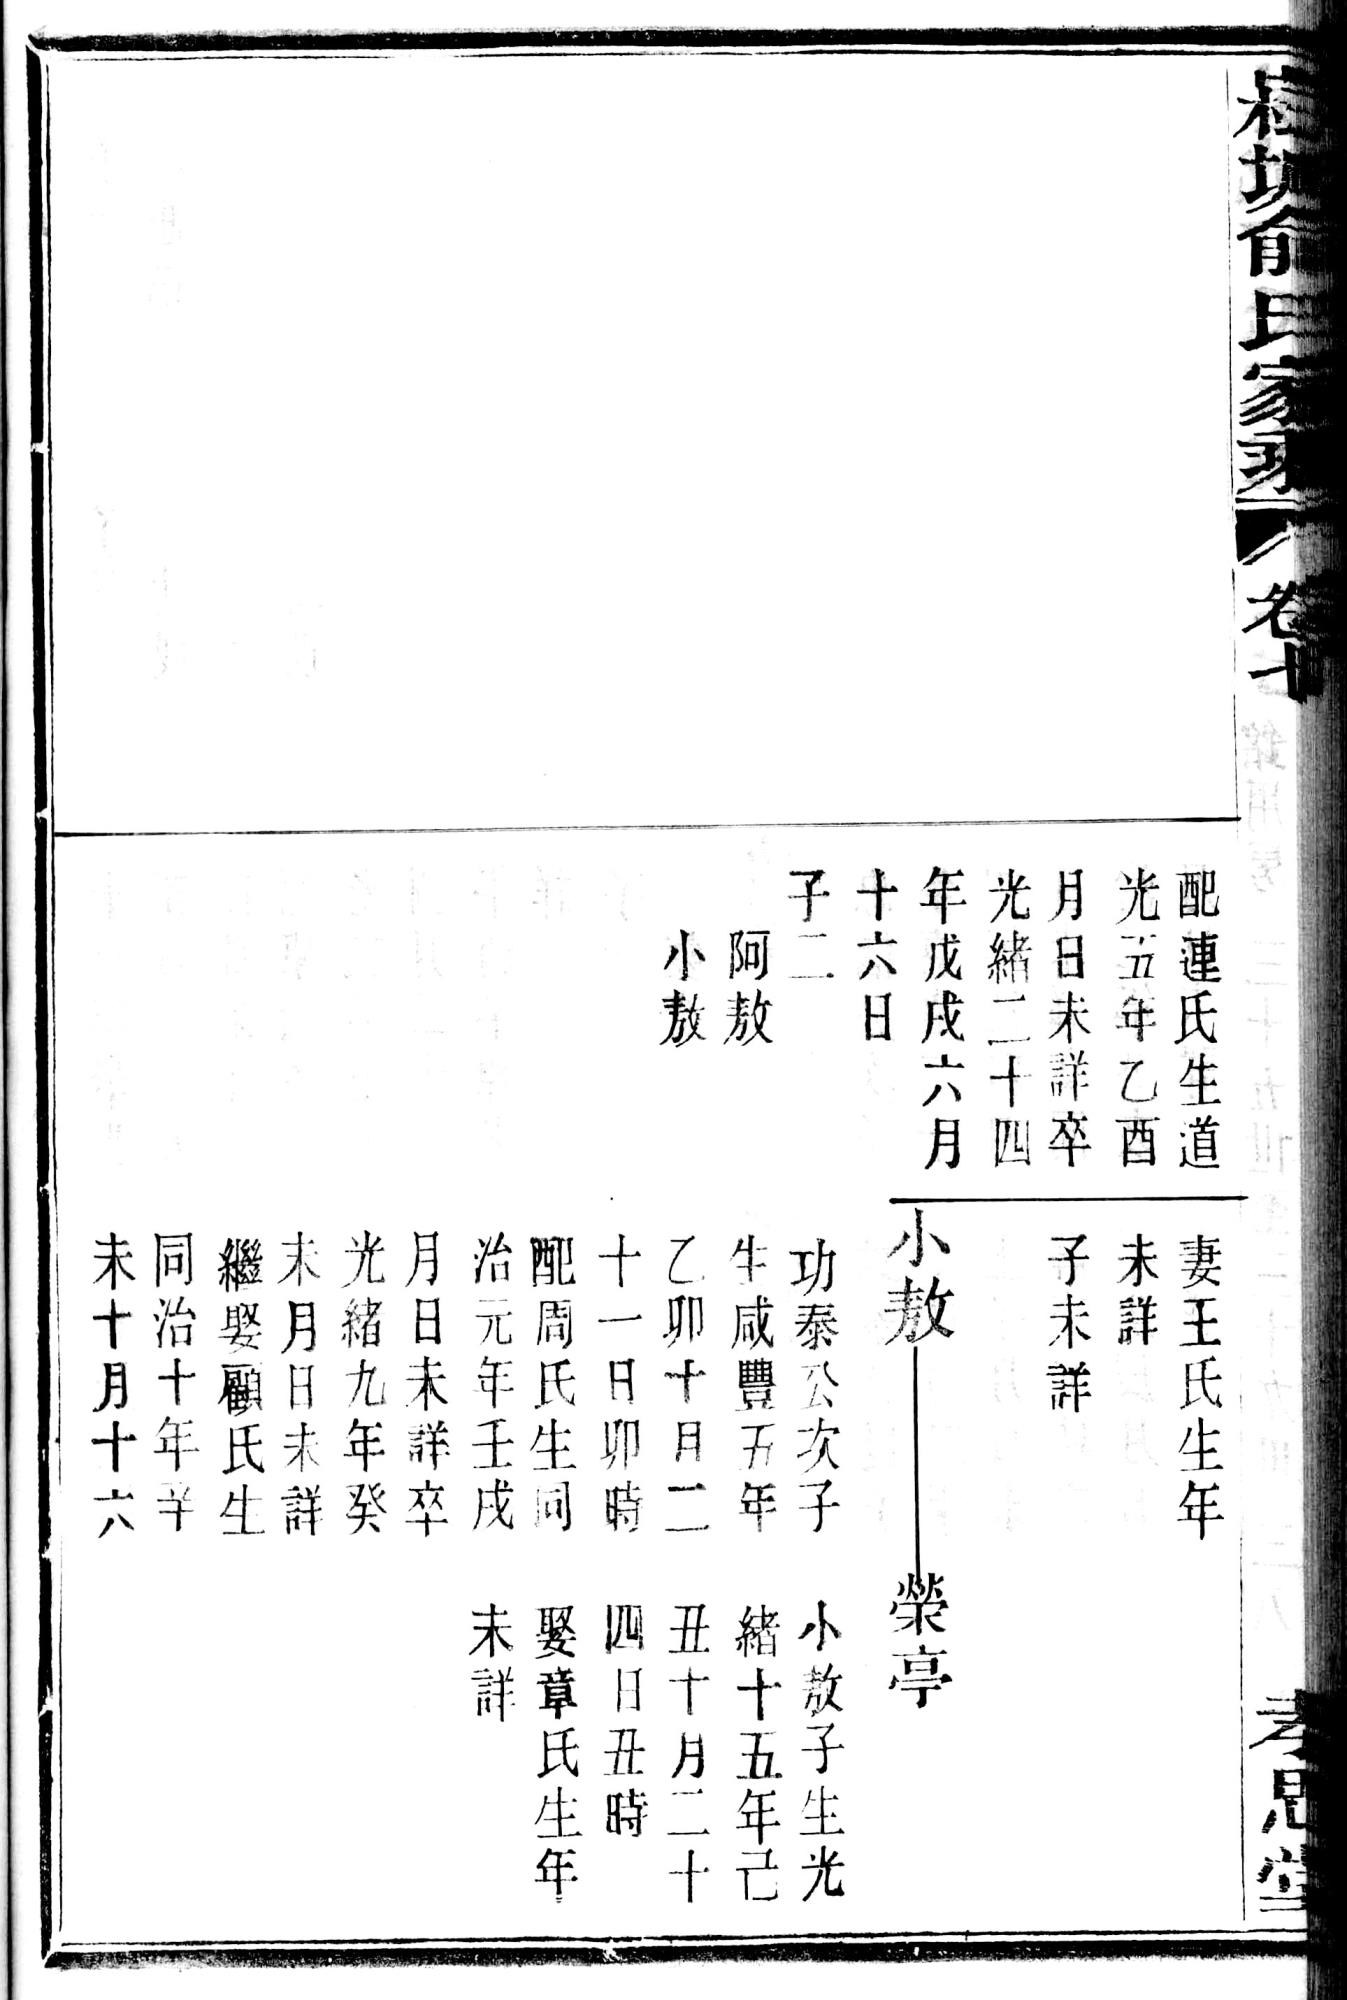 俞氏家乘
卷十
孝思堂
配連氏生道
光五年乙酉
月日未詳卒
光緒二十四
年戊戌六月
十六日
子二
阿敖
小敖
妻王氏生年
未詳
子未詳
小敖
榮亭
功泰公次子
生咸豐五年
乙卯十月二
十一日卯時
配周氏生同
治元年壬戌
月日未詳卒
光緒九年癸
未月日未詳
繼娶顧氏生
同治十年辛
未十月十六
小敖子生光
緒十五年己
丑十月二十
四日丑時
娶章氏生年
未詳